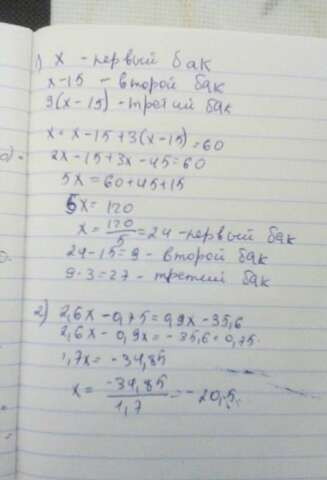 1) x - первый бак
x-15 - второй бак
3(x-15) - третий бак
x = x-15+3(x-15)=60
2x-15+3x-45=60
5x = 60+45+15
5x = 120
x = 120/5 = 24 - первый бак
24-15=9 - второй бак
9·3=27 - третий бак
2) 2,6x-0,75=0,9x-35,6
2,6x-0,9x=-35,6+0,75
1,7x=-34,85
x = -34,85/1,7 = -20,5